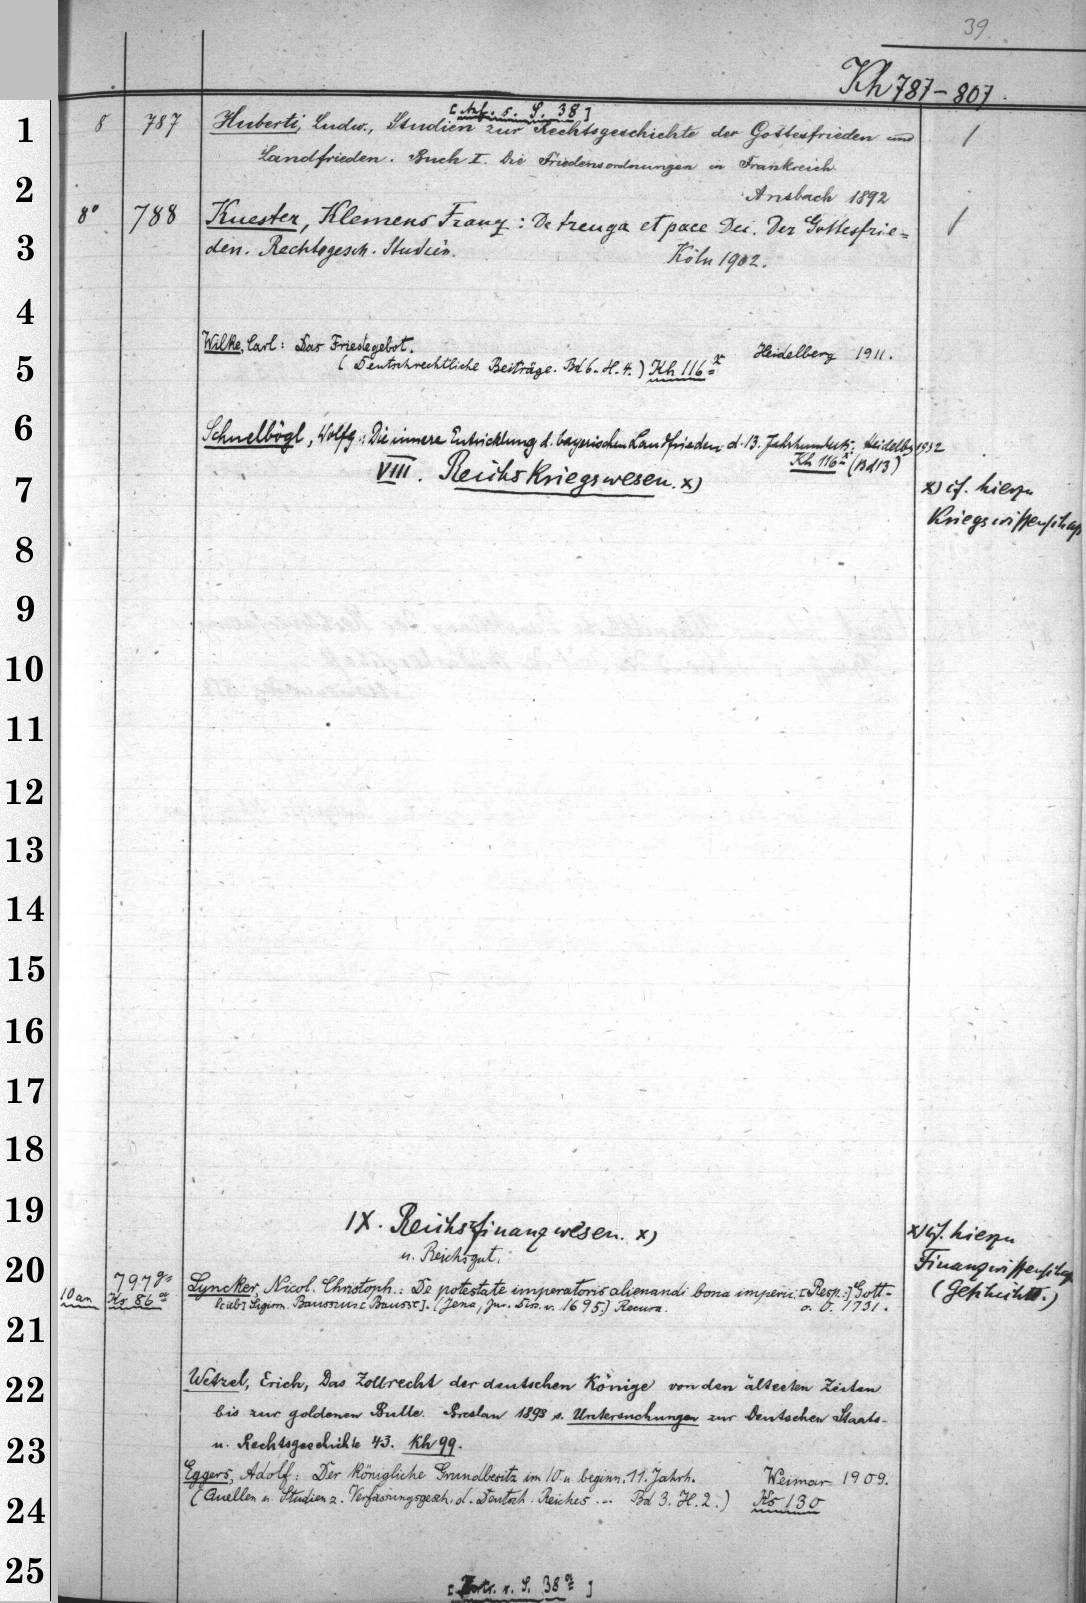 39.
Kh 787-807.
[Anf. s. S. 38]
1 8 787 Huberti, Ludw., Studien zur Rechtsgeschichte der Gottesfrieden und 1
Landfrieden. Buch I. Die Friedensordnungen in Frankreich.
2 Ansbach 1892
8° 788 Kuester, Klemens Franz: De treuga et pace Dei. Der Gottesfrie= 1
3 den. Rechtsgesch. Studien. Köln 1902.
4
Wilke, Carl: Das Friedegebot. Heidelberg 1911.
5 (Deutschrechtliche Beiträge. Bd 6. H. 4.) Kh 116 x
6 Schnelbögl, Wolfg.: Die innere Entwicklung d. bayerischen Landfrieden d. 13. Jahrhunderts. Heidelbg 1932
Kh 116 x (Bd 13)
7 VIII. Reichskriegswesen. x) x) cf. hierzu
Kriegswissenschaft
8
9
10
11
12
13
14
15
16
17
18
19 IX. Reichsfinanzwesen. x) x) cf. hierzu
u. Reichsgut.
20 Finanzwissenschaft
797 (Geschichte.)
10 an Ks 86 Lyncker, Nicol. Christoph.: De potestate imperatoris alienandi bona imperii. [Resp.:] Gott-
l[ieb] Sigism. [Jena, jur. Diss. v. 1695.] Recusa. o. O. 1731.
21
22 Wetzel, Erich, Das Zollrecht der deutschen Könige von den ältesten Zeiten
bis zur goldenen Bulle. Breslau 1893 s. Untersuchungen zur Deutschen Staats-
23 u. Rechtsgeschichte 43. Kh 99.
Eggers, Adolf: Der königliche Grundbesitz im 10. u. beginn. 11. Jahrh. Weimar 1909.
24 (Quellen u. Studien z. Verfassungsgesch. d. Deutsch. Reiches ... Bd 3. H. 2.) Ks 130
25 [Forts. s. S. 38 a]